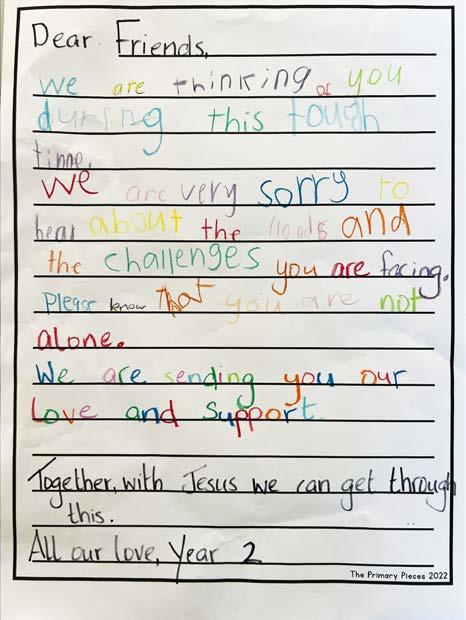 Dear Friends,
We are thinking of you
during this tough
time.
We are very sorry to
hear about the floods and
the challenges you are facing.
Please know that you are not
alone.
We are sending you our
love and support.
Together, with Jesus we can get through
this.
All our love, Year 2
The Primary Pieces 2022